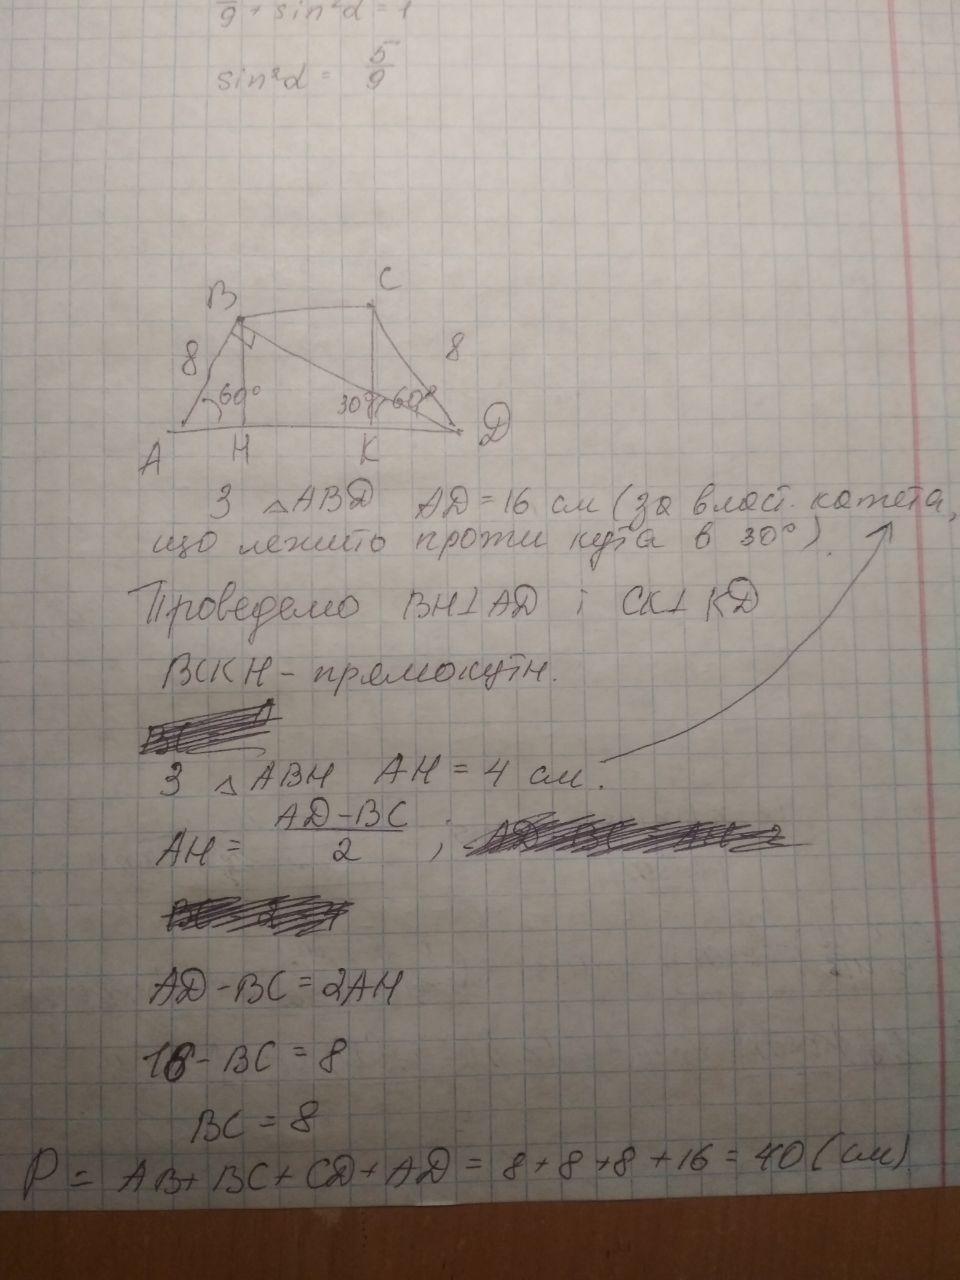 9 + sin²α = 1
sin²α = 5/9
B
C
8
8
60°
30°
60°
A
H
K
D
З △ABD AD = 16 см (за власт. катета,
що лежить проти кута в 30°).
Проведемо BH⊥AD і CK⊥KD
BCKH - прямокутн.
З △ABH AH = 4 см.
AH = (AD - BC)/2 ;
AD - BC = 2AH
16 - BC = 8
BC = 8
P = AB + BC + CD + AD = 8 + 8 + 8 + 16 = 40 (см)